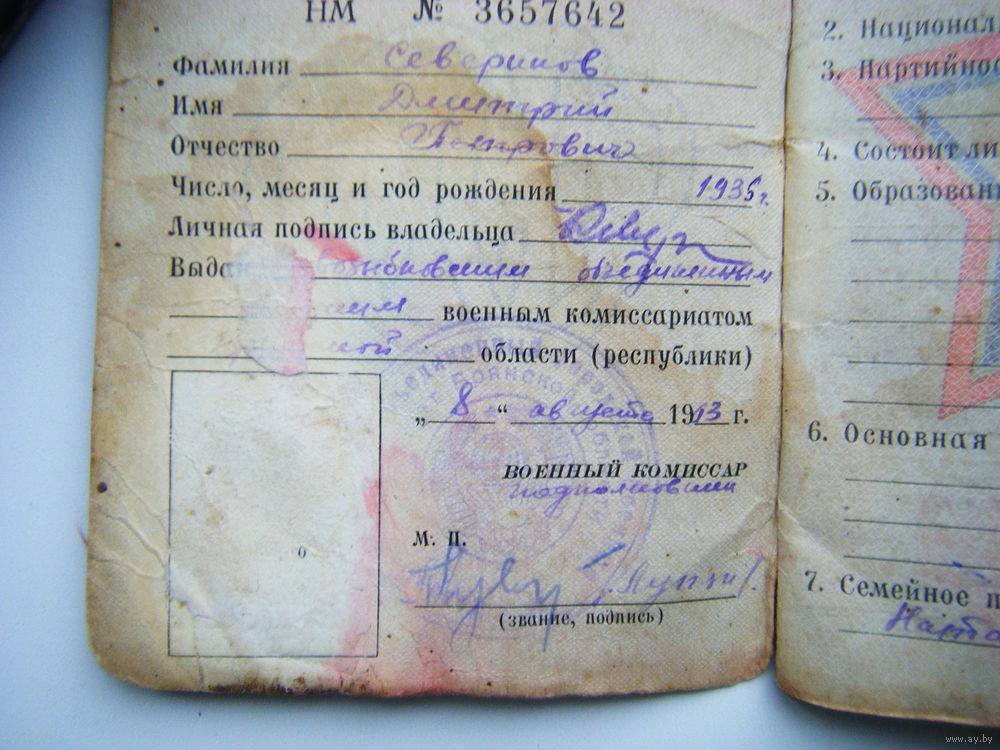 НМ № 3657642
Фамилия Северинов
Имя Дмитрий
Отчество Петрович
Число, месяц и год рождения 1935г.
Личная подпись владельца
Выдан объединенным
военным комиссариатом
ской области (республики)
„ 8 “ августа 19 г.
ВОЕННЫЙ КОМИССАР
подполковник
М. П.
(звание, подпись)
2. Национал
3. Партийнос
4. Состоит ли
5. Образовани
6. Основная
7. Семейное п
www.ay.by